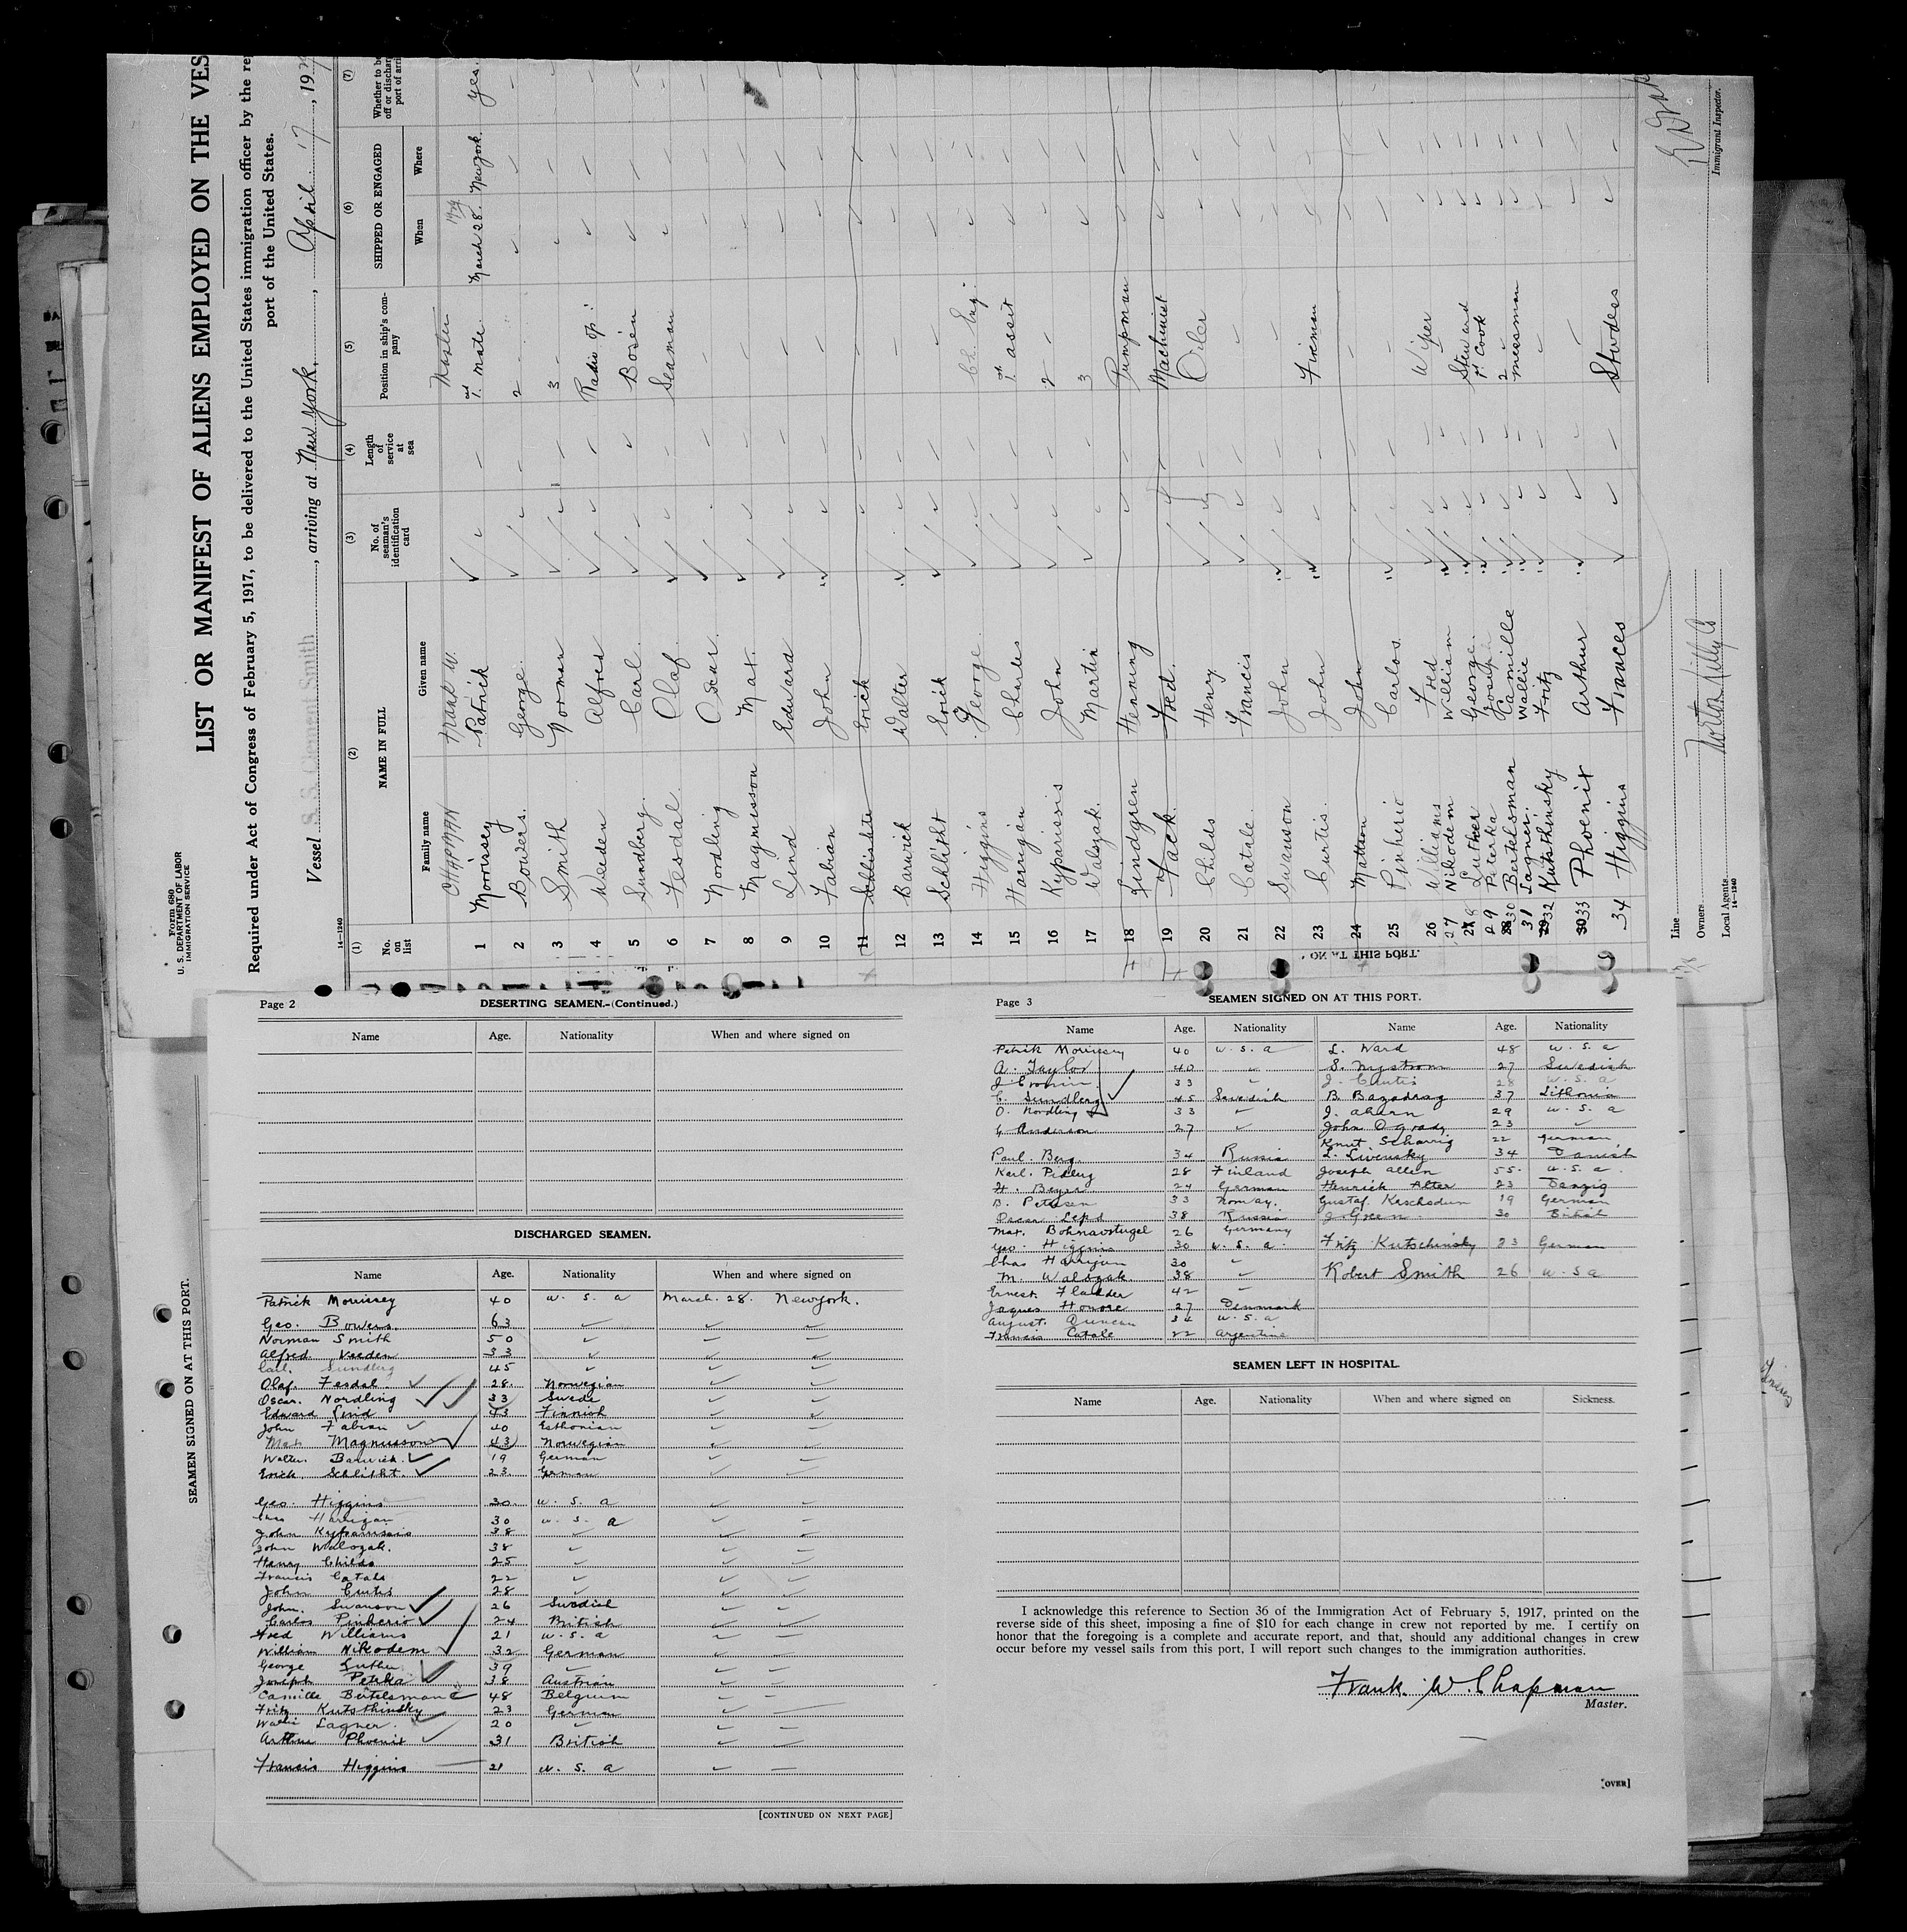 Form 680
U. S. DEPARTMENT OF LABOR
IMMIGRATION SERVICE
LIST OR MANIFEST OF ALIENS EMPLOYED ON THE VES
Required under Act of Congress of February 5, 1917, to be delivered to the United States immigration officer by the re
port of the United States.
Vessel S. S. Clement Smith, arriving at New York, April 17, 192
14—1240
(1) (2) (3) (4) (5) (6) (7)
No. on list NAME IN FULL No. of seaman's identification card Length of service at sea Position in ship's company SHIPPED OR ENGAGED Whether to be off or discharg port of arri
Family name Given name When Where
CHAPMAN Frank W. Master
1 Morrissey Patrick 1st mate March 28. New york. yes.
2 Bowers. George. 2
3 Smith Norman 3
4 Weeden Alfred Radio op.
5 Sundberg. Carl. Bosen
6 Fesdal. Olaf. Seaman
7 Nodling Oscar.
8 Magnusson Max.
9 Lind Edward
10 Fabian John
11 Erick
12 Barwick Walter
13 Schlitht Erick
14 Higgins George. Ch. Eng.
15 Harrigan Charles 1st assit
16 Kyparissis John 2
17 Walozak. Martin 3
18 Lindgren Henning Pumpman
19 Fack. Fred. Machinist
20 Childs Henry Oiler
21 Catale. Francis
22 Swanson John
23 Curtis. John Fireman
24 Matton John
25 Pinherio Carlos.
26 Williams Fred Wiper
27 Nikodem William
28 Luther George. Steward
29 Pierka Joseph 1st Cook
30 Bertelsman Camille 2
31 Lagner. Wallie messman
32 Kutsthinsky Fritz
33 Phoenix Arthur
34 Higgins Frances
Line
Owners
Local Agents Norton Lilly Co
14—1240
Immigrant Inspector.
ON AT THIS PORT.
SEAMEN SIGNED ON AT THIS PORT.
Page 2 DESERTING SEAMEN.—(Continued.)
Name Age. Nationality When and where signed on
DISCHARGED SEAMEN.
Name Age. Nationality When and where signed on
Patrick Morrissey 40 u. s. a March. 28. Newyork.
Geo. Bowers. 63
Norman Smith 50
Alfred Veeden 33
Carl. Sundberg 45
Olaf. Fesdal 28. Norwegian
Oscar. Nordling 33 Swede
Edward Lind 43 Finnish
John Fabian 40 Esthonian
Max Magnusson 43 Norwegian
Walter. Barwick. 19 German
Erick. Schlitht. 23. German
Geo. Higgins 30. u. s. a
Harrigan 30 u. s. a
John Kyparissis 38
John Walozak. 38
Henry Childs 25
Francis Catale 22
John Curtis 28
John. Swanson 26 Swedish
Carlos Pinherio 24 British
Fred Williams 21 u. s. a
William Nikodem 32 German
George Luther 39
Joseph Peterka 38 Austrian
Camille Bertelsman 48 Belgium
Fritz Kutsthinsky 23 German
Wallie Lagner. 20
Arthur Phoenix 31 British
Francis Higgins 21 u. s. a
[CONTINUED ON NEXT PAGE]
Page 3 SEAMEN SIGNED ON AT THIS PORT.
Name Age. Nationality Name Age. Nationality
Patrik Morrissey 40 u. s. a L. Ward 48 u. s. a
A. Taylor 40 S. Nystrom 27 Swedish
J. Cronin. 33 J. Curtis 28 u. s. a
C. Sundberg 45 Swedish B. Bazadrag 37 Lithonia
O. Nordling 33 J. Ahern 29 u. s. a
G Anderson 27 John Ogrady 23
Knut Scharrig 22 German
Paul. Berg. 34 Russia L. Livensky 34 Danish
Karl. Piberg 28 Finland Joseph Allen 55. u. s. a.
H. Beyer 24 German Henrick Alter 23 Danzig
B. Petersen 33 Norway. Gustaf. Kaschsdun 19 German
Oscar Lepd 38 Russia J. Green. 30 British
Max. Bohnavstugel 26 Germany
Geo. Higgins 30 u. s. a. Fritz Kutschinsky 23 German
Chas Harrigan 30
M. Walozak 38 Robert Smith 26 u. s a
Ernest. Fladder 42
Jaques Honore 27 Denmark
August. Duncan 34 u. s. a
Francis Catale 22 Argentina
SEAMEN LEFT IN HOSPITAL.
Name Age. Nationality When and where signed on Sickness.
I acknowledge this reference to Section 36 of the Immigration Act of February 5, 1917, printed on the
reverse side of this sheet, imposing a fine of $10 for each change in crew not reported by me. I certify on
honor that the foregoing is a complete and accurate report, and that, should any additional changes in crew
occur before my vessel sails from this port, I will report such changes to the immigration authorities.
Frank. W. Chapman
Master.
[OVER]